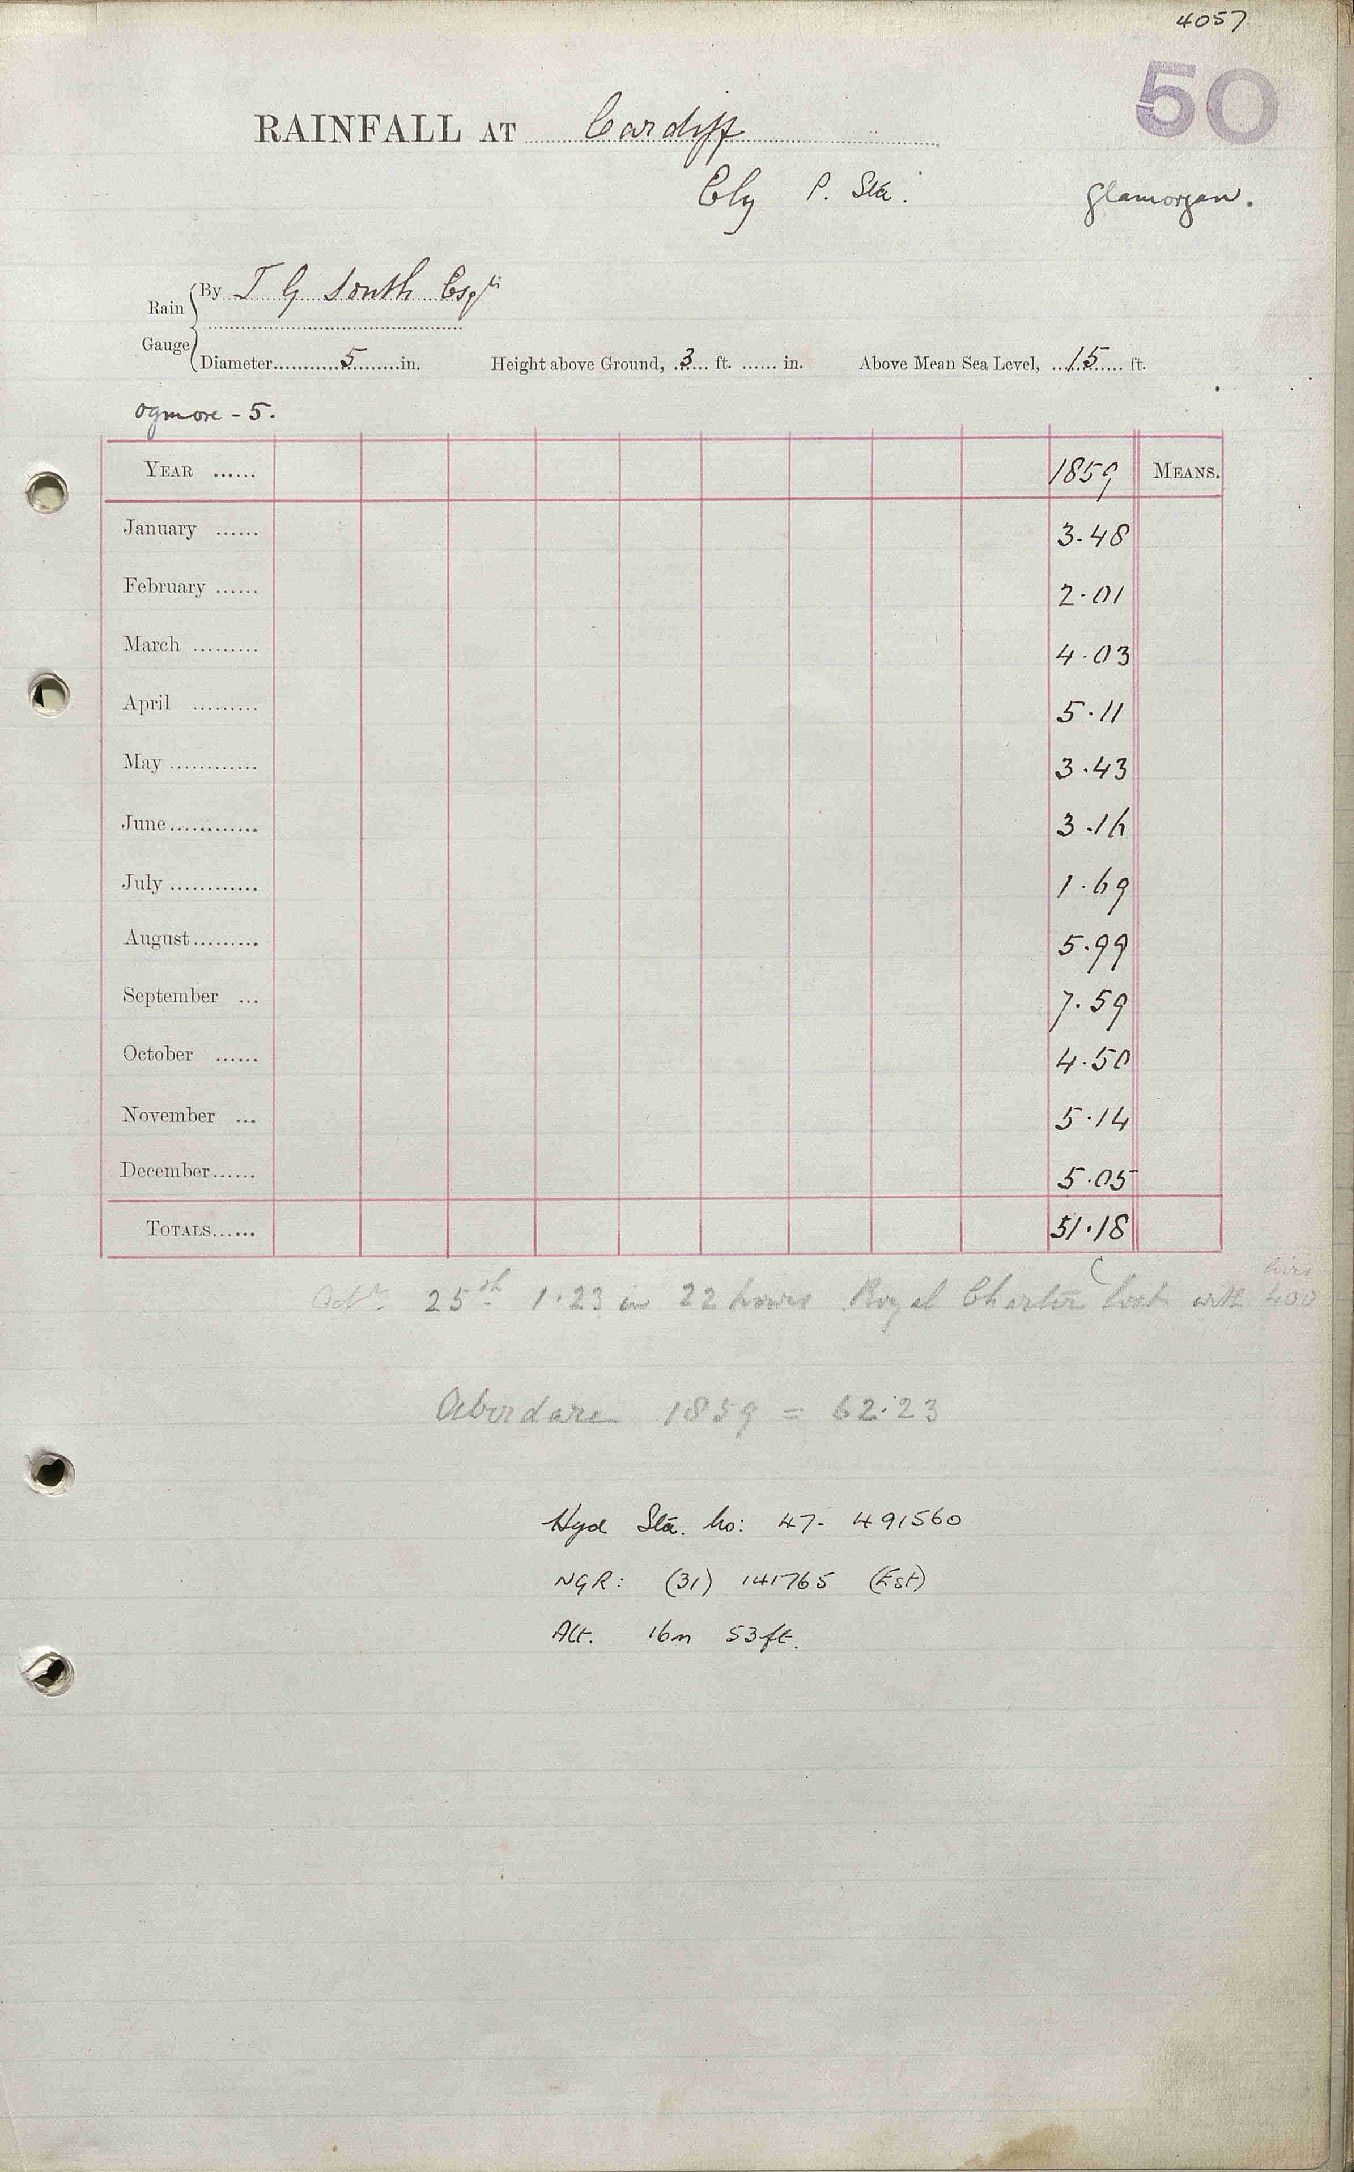 4057
50
RAINFALL AT Cardiff
Ely P. Sta.
Glamorgan.
Rain Gauge
By T G South Esqre
Diameter 5 in. Height above Ground, 3 ft. in. Above Mean Sea Level, 15 ft.
Ogmore - 5.
YEAR 1859 MEANS.
January 3.48
February 2.01
March 4.03
April 5.11
May 3.43
June 3.16
July 1.69
August 5.99
September 7.59
October 4.50
November 5.14
December 5.05
TOTALS 51.18
25th 1.23 in 22 hours Royal Charter lost with 400 lives
Aberdare 1859 = 62.23
Hyd Sta. No: 47- 491560
NGR: (31) 141765 (Est)
Alt. 16m 53ft.